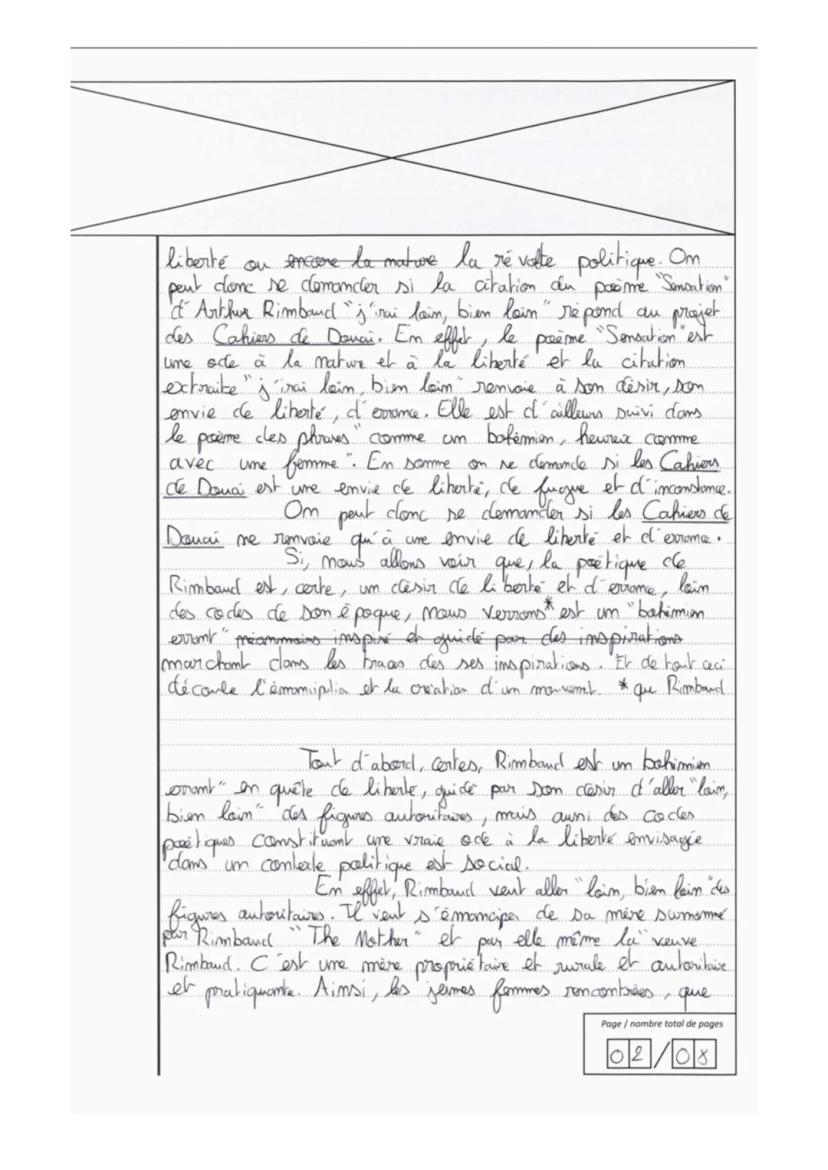 liberté ou encore la nature la révolte politique. On
peut donc se demander si la citation du poème "Sensation"
d'Arthur Rimbaud "j'irai loin, bien loin" répond au projet
des Cahiers de Douai. En effet, le poème "Sensation" est
une ode à la nature et à la liberté et la citation
extraite "j'irai loin, bien loin" renvoie à son désir, son
envie de liberté, d'errance. Elle est d'ailleurs suivi dans
le poème des phrases "comme un bohémien, heureux comme
avec une femme". En somme on se demande si les Cahiers
de Douai est une envie de liberté, de fugue et d'inconstance.
On peut donc se demander si les Cahiers de
Douai ne renvoie qu'à une envie de liberté et d'errance.
Si, nous allons voir que, la poétique de
Rimbaud est, certe, un désir de liberté et d'errance, loin
des codes de son époque, nous verrons* est un "bohémien
errant" néanmoins inspiré et guidé par des inspirations
marchant dans les traces des ses inspirations. Et de tout ceci
découle l'émancipatia et la création d'un mouvemt. * que Rimbaud
Tout d'abord, certes, Rimbaud est un bohémien
errant" en quête de liberte, guidé par son désir d'aller "loin,
bien loin" des figures autoritaires, mais aussi des codes
poétiques constituant une vraie ode à la liberté envisagée
dans un contexte politique est social.
En effet, Rimbaud veut aller "loin, bien loin" des
figures autoritaires. Il veut s'émanciper de sa mère surnommé
par Rimbaud "The Mother" et par elle même la "veuve
Rimbaud. C'est une mère propriétaire et rurale et autoritaire
et pratiquante. Ainsi, les jeunes femmes rencontrées, que
Page / nombre total de pages
02/08